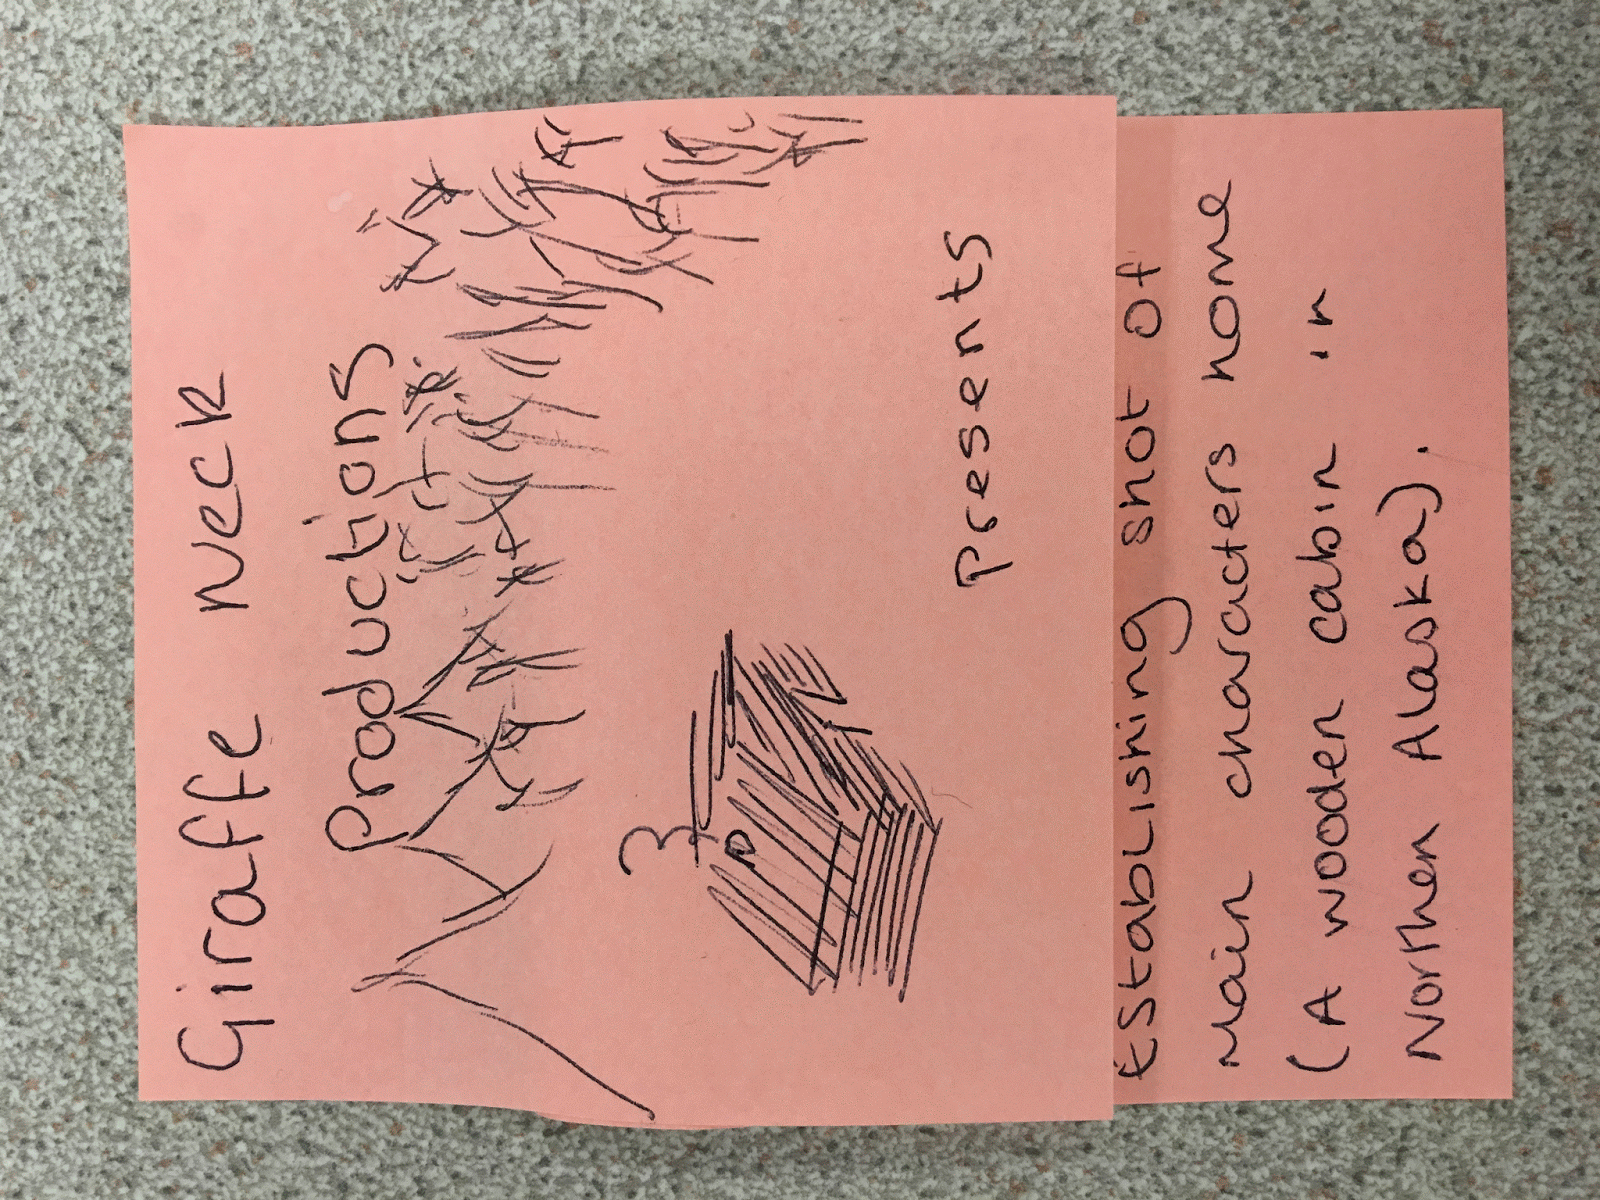 Giraffe Neck
Productions
presents
Establishing shot of
Main characters home
(A wooden cabin in
Northen Alaska).